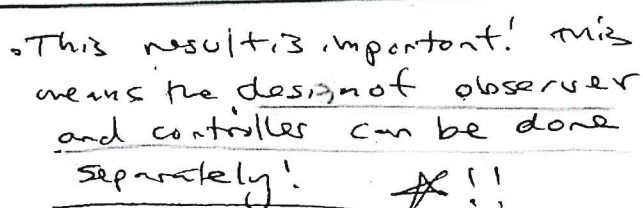 • This result is important! This
means the design of observer
and controller can be done
separately! ☆!!